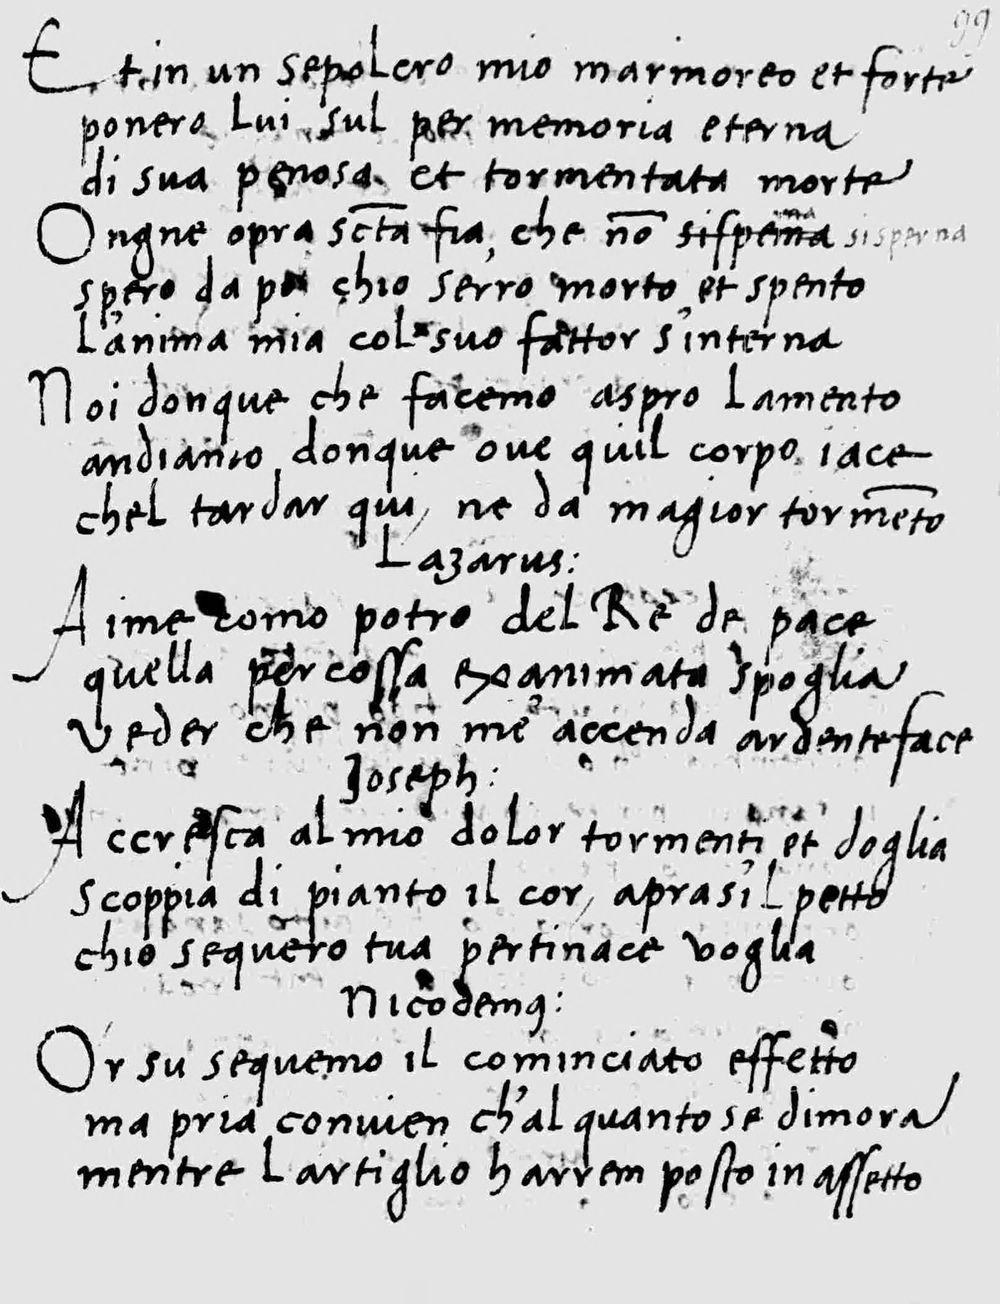 99
Et in un sepolcro mio marmoreo et forte
ponero Lui sul per memoria eterna
di sua penosa et tormentata morte
Ongne opra sc̅ta fia, che no̅ sisperna
spero da poi chio serro morto et spento
L'anima mia col suo fattor s'interna
Noi donque che facemo aspro Lamento
andiamo donque oue quil corpo iace
chel tardar qui, ne da magior torme̅to
Lazarus:
Aime como potro del Re de pace
quella percossa exanimata spoglia
veder che non me accenda ardente face
Joseph:
Accresca al mio dolor tormenti et doglia
scoppia di pianto il cor, aprasi'L petto
chio sequero tua pertinace voglia
Nicodemꝯ:
Or su sequemo il cominciato effetto
ma pria conuien ch'al quanto se dimora
mentre L artiglio harrem posto in assetto